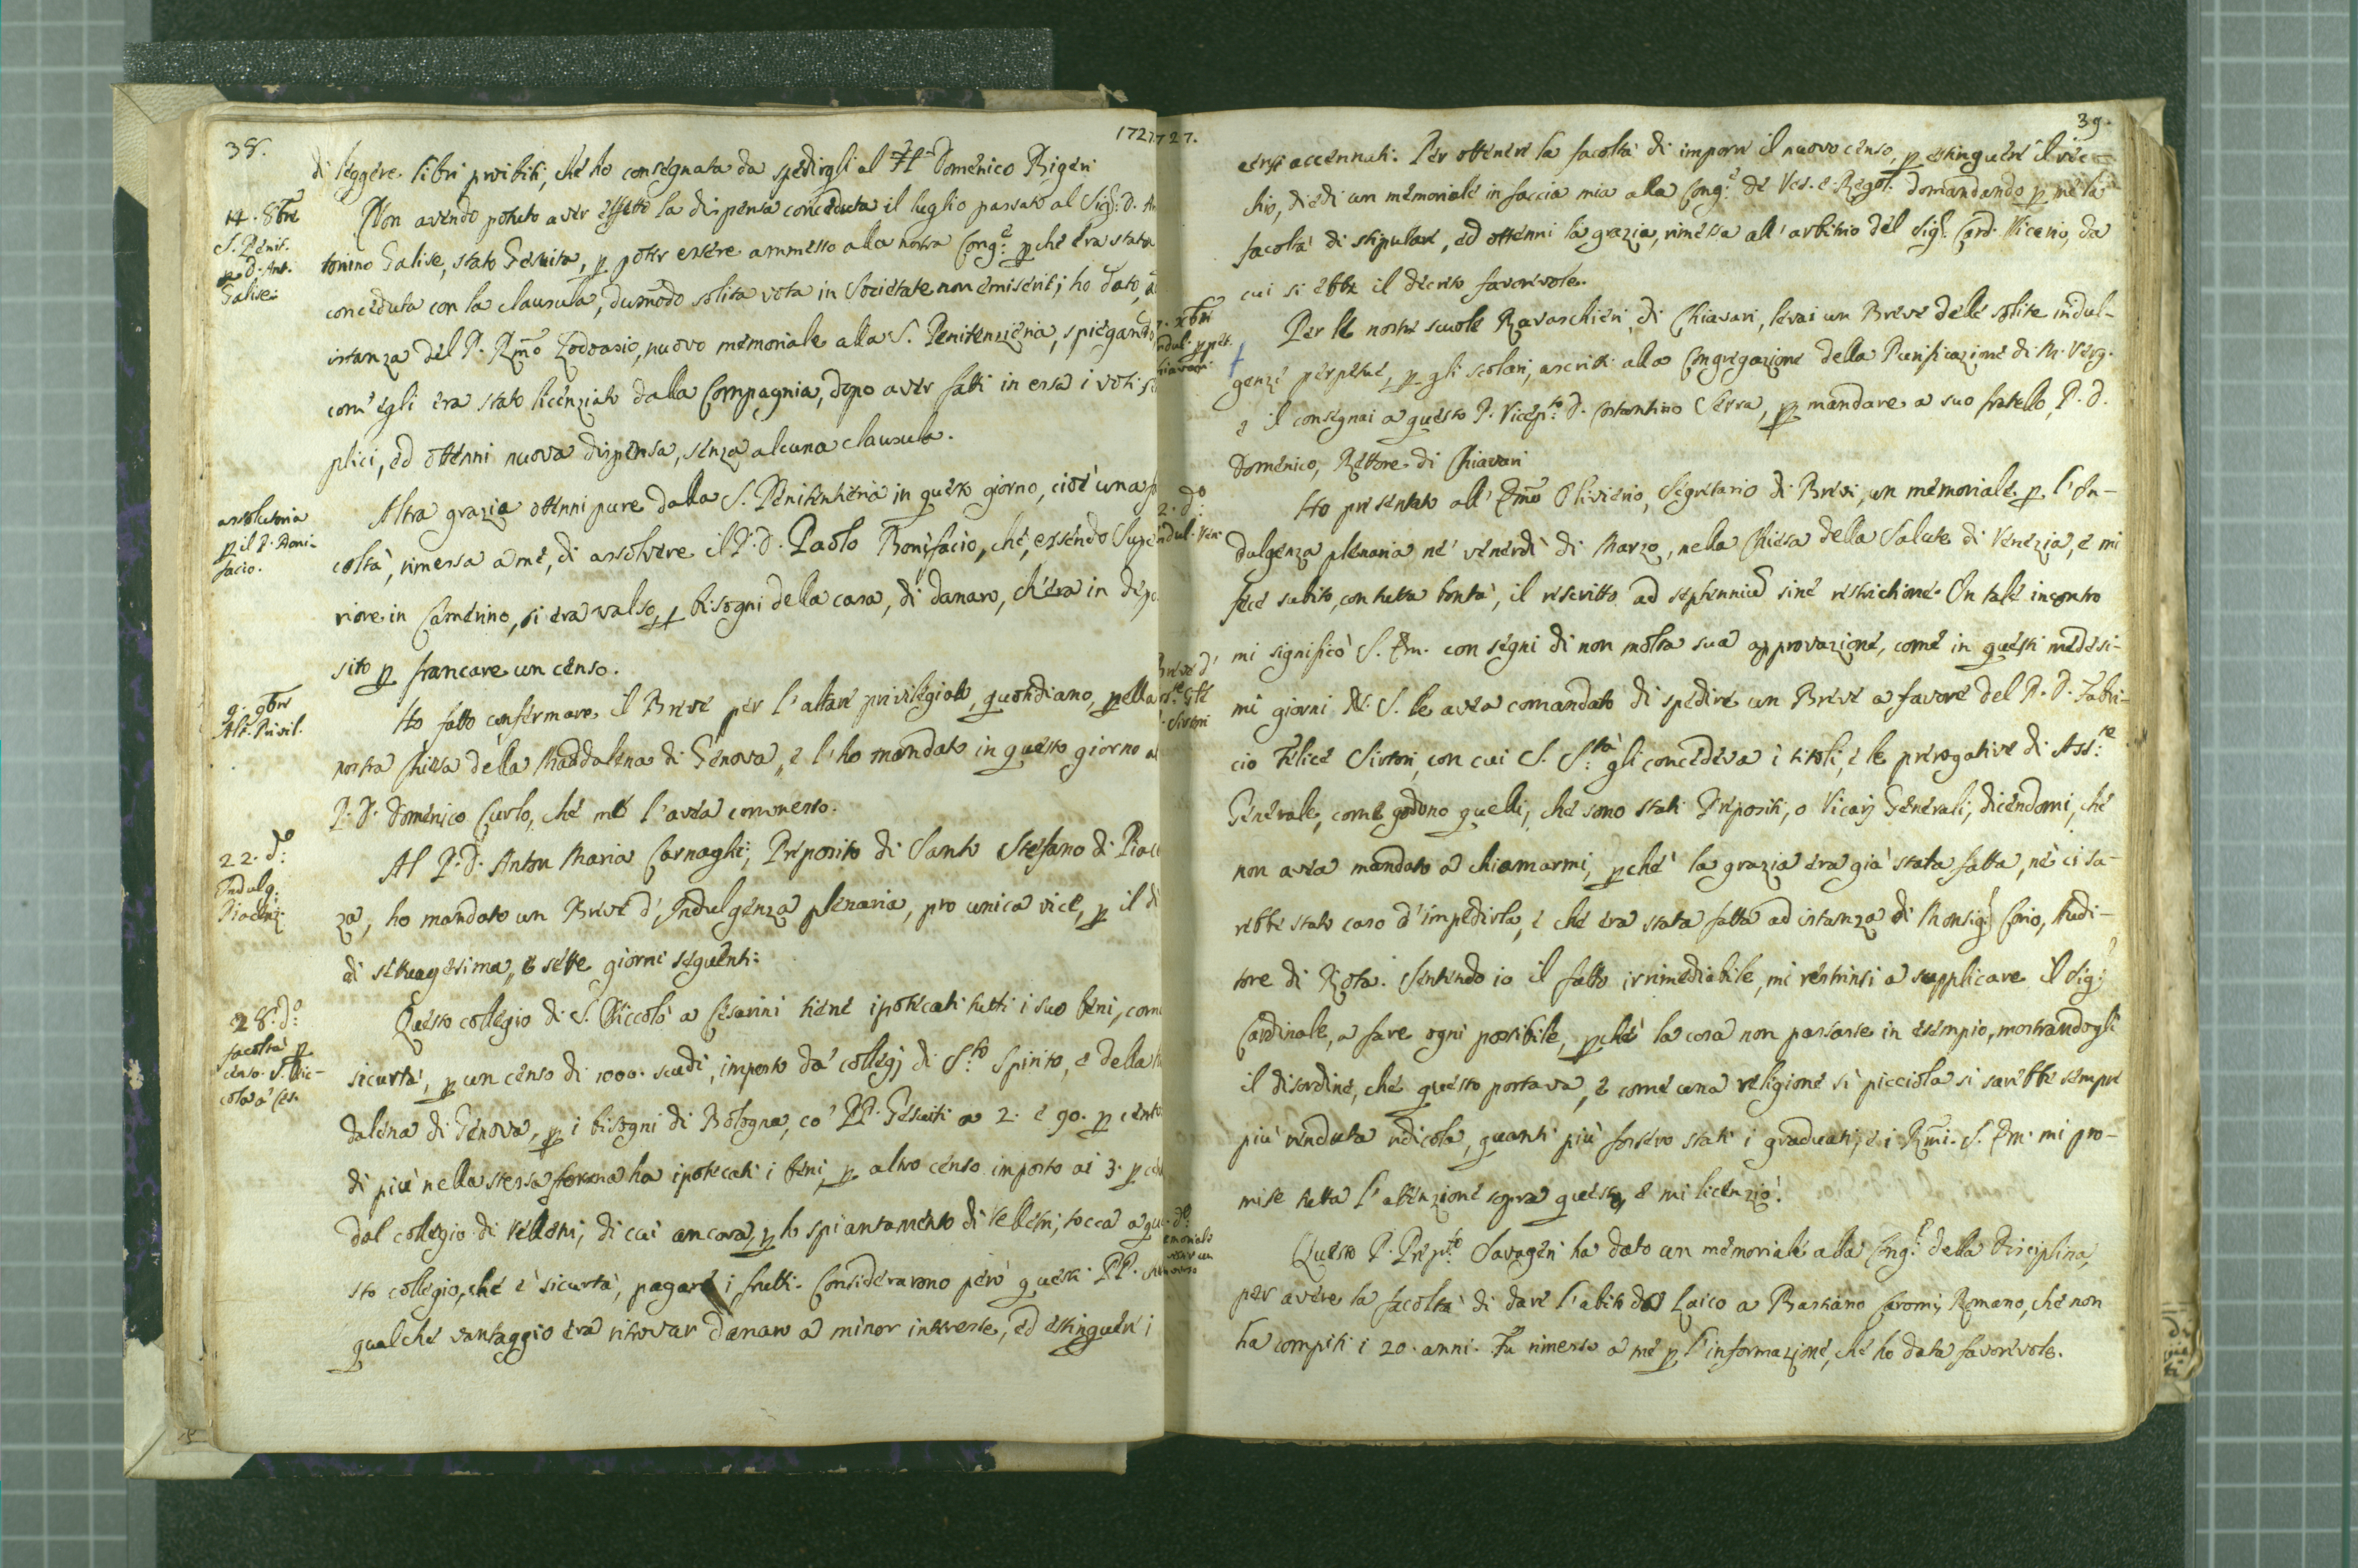 38.
1727
di leggere libri proibiti, che ho consegnata da spedirgli al Domenico Rigeri
14. 8bre
S. Penit.
p D. Ant.
Galise.
Non avendo potuto aver effetto la dispensa conceduta il luglio passato al Sig.r D. An
tonino Galise, stato Gesuita, p poter essere ammesso alla nostra Cong.e p che era stata
conceduta con la clausula, dummodo solita vota in Societate non emiserit; ho dato, a
istanza del P. Rmo Lodovasio, nuovo memoriale alla S. Penitenzieria, spiegando
com' egli era stato licenziato dalla Compagnia, dopo aver fatti in essa i voti se
plici, ed ottenni nuova dispensa, senza alcuna clausula.
assolutoria
p il P. Boni-
facio.
Altra grazia ottenni pure dalla S. Penitentieria in questo giorno, cioè una fa
coltà, rimessa a me, di assolvere il P. D. Paolo Bonifacio, che, essendo Supe
riore in Camerino, si era valso, p bisogni della casa, di danaro, ch'era in depo
sito p francare un censo.
9. 9bre
Alt. Privil.
Ho fatto confermare il Breve per l'altare privilegiato, quotidiano, p ella
nostra Chiesa della Maddalena di Genova, e l'ho mandato in questo giorno al
P. D. Domenico Curlo, che me l'avea commesso.
22. do:
Indulg.
Piacenz.
Al P. D. Anton Maria Carnaghi, Preposito di Santo Stefano di Piac
za, ho mandato un Breve d' Indulgenza plenaria, pro unica vice, p il dì
di settuagesima, e sette giorni seguenti.
28. do:
facoltà p
censo S. Nic-
cola a' Ces.
Questo collegio di S. Niccolò a Cesarini tiene ipotecati tutti i suo beni, come
sicurtà, p un censo di 1000. scudi, imposto da' collegj di S.to Spirito, e della
dalena di Genova, p i bisogni di Bologna, co' PP. Gesuiti a 2. e 90. p cento
di più nella stessa forma ha ipotecati i beni, p altro censo imposto ai 3. p cen
dal collegio di Velletri, di cui ancora, p lo spiantamento di Velletri, tocca a que
sto collegio, che è sicurtà, pagare i frutti. Considerarono però questi PP. che
qualche vantaggio era ritrovar danaro a minor interesse, ed estinguere i
727.
39.
censi accennati. Per ottenere la facoltà di imporre il nuovo censo, p estinguere il vec-
chio, diedi un memoriale in faccia mia alla Cong.e de Ves. e Regol. domandando p me la
facoltà di stipulare, ed ottenni la grazia, rimessa all' arbitrio del Sig.r Card. Vicario, da
cui si ebbe il decreto favorevole.
xbre
ndul. p pet.
hiavari
Per le nostre scuole Ravaschieri, di Chiavari, levai un Breve delle solite indul-
genze perpetue, p gli scolari, ascritti alla Congregazione della Purificazione di M. Verg.
e il consegnai a questo P. Vicep.to D. Costantino Serra, p mandare a suo fratello, P. D.
Domenico, Rettore di Chiavari
2. do:
ndul. Ven.
Ho presentato all' Emo Oliviero, Segretario di Brevi, un memoriale p l'In-
dulgenza plenaria ne' venerdì di Marzo, nella Chiesa della Salute di Venezia, e mi
fece subito, con tutta bontà, il rescritto ad septennium sine restrictione. In tale incontro
mi significò S. Em. con segni di non molta sua approvazione, come in questi medesi-
Breve d'
Ass.re Gle
P. Sironi
mi giorni N. S. le avea comandato di spedire un Breve a favore del P. D. Fabri-
cio Felice Sironi, con cui S. S.tà gli concedeva i titoli, e le prerogative di Ass.re
Generale, come godono quelli, che sono stati Prepositi, o Vicarj Generali, dicendomi, che
non avea mandato a chiamarmi, p che la grazia era già stata fatta, nè ci sa-
rebbe stato caso d'impedirla, e che era stata fatta ad istanza di Monsig.r Corio, Audi-
tore di Rota. Sentendo io il fatto irrimediabile, mi restrinsi a supplicare il Sig.r
Cardinale, a fare ogni possibile, p che la cosa non passasse in esempio, mostrandogli
il disordine, che questo portava, e come una religione sì picciola si sarebbe sempre
più renduta ridicola, quanti più fossero stati i graduati, e i Rmi. S. Em. mi pro-
mise tutta l'attenzione sopra questo, e mi licenziò.
do:
emoriale
Questo P. Prep.to Savageri ha dato un memoriale alla Cong.e della Disciplina,
per avere la facoltà di dare l'abito da Laico a Bastiano Caromi, Romano, che non
ha compiti i 20. anni. Fu rimesso a me p l'informazione, che ho data favorevole.